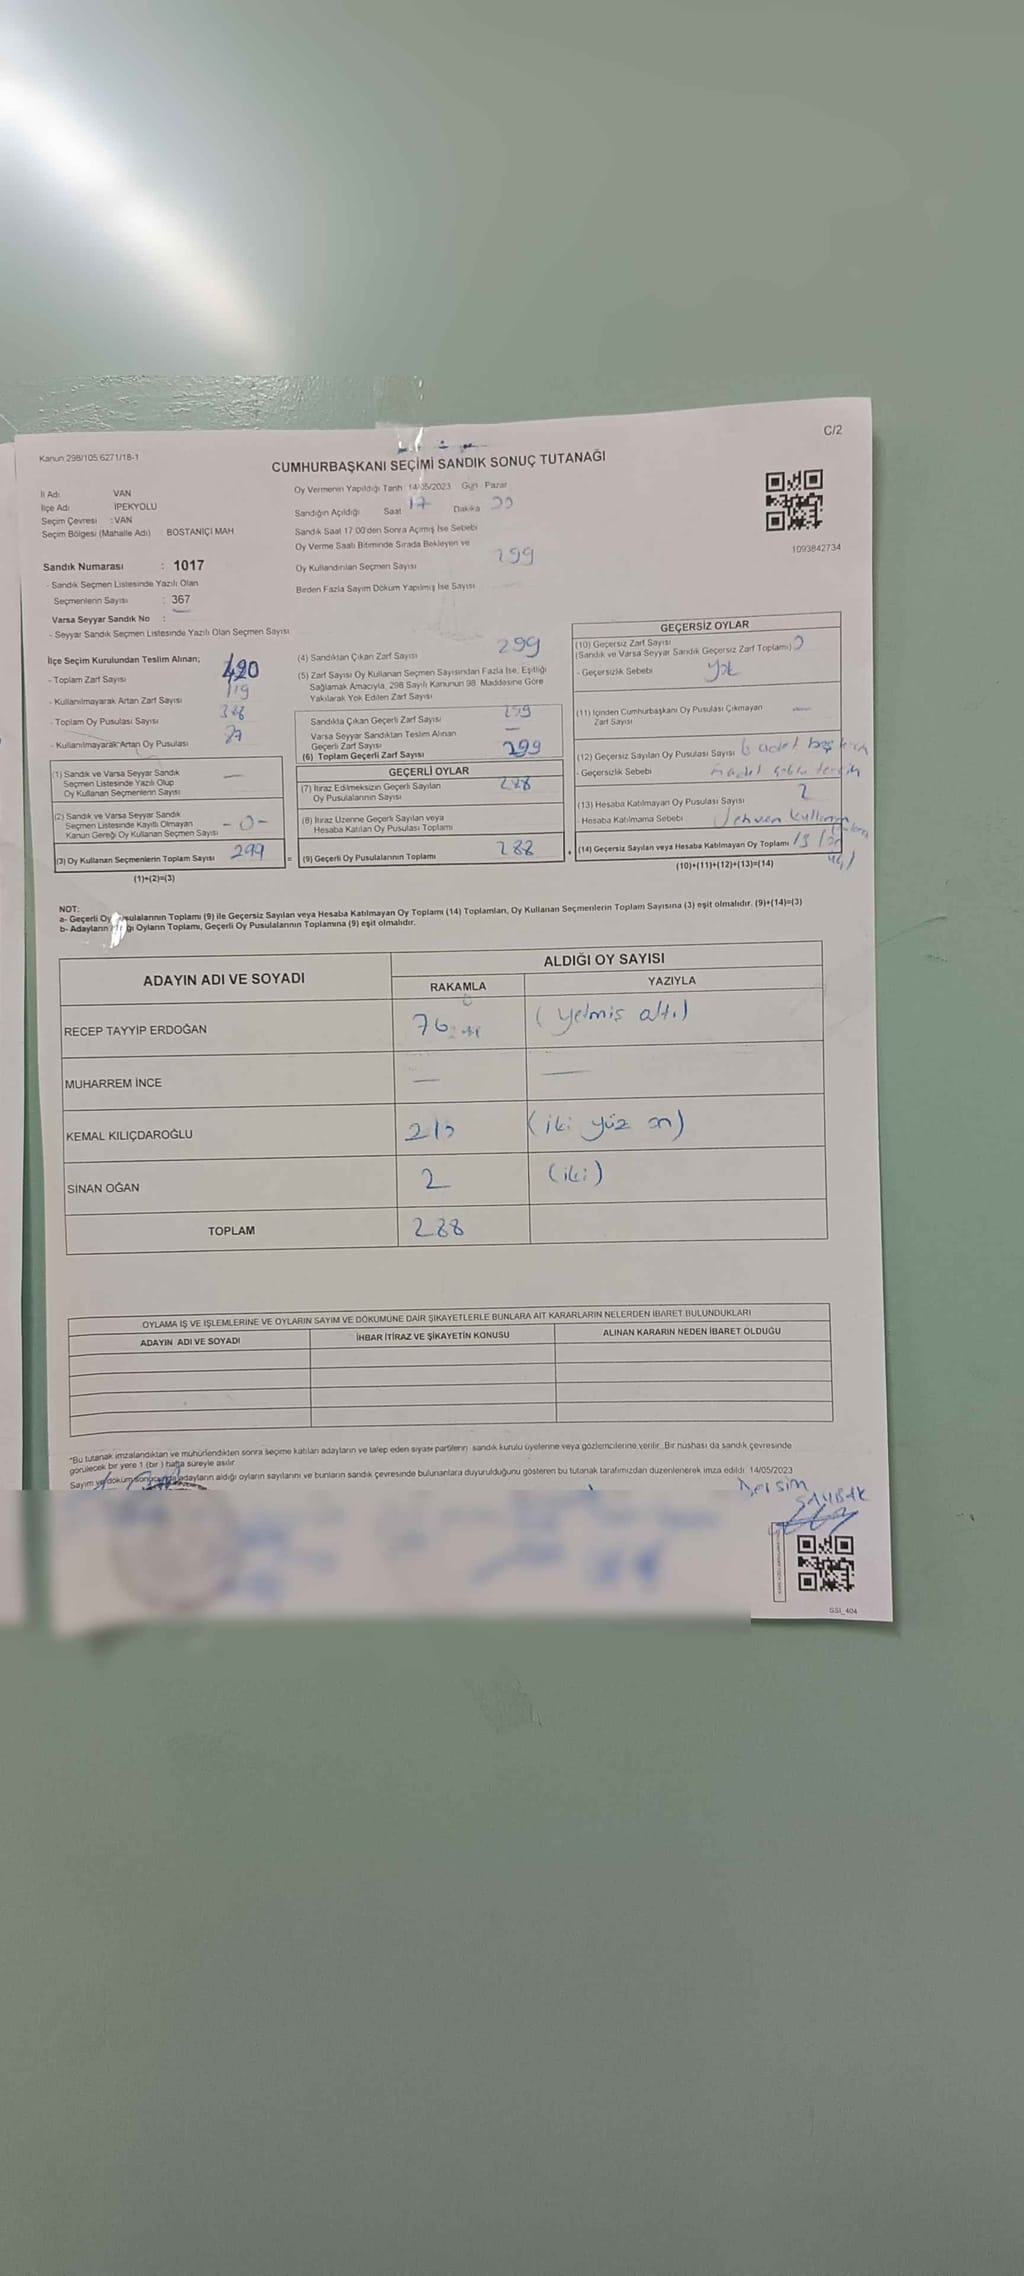 C/2
Kanun 298/105 6271/18-1
CUMHURBAŞKANI SEÇİMİ SANDIK SONUÇ TUTANAĞI
İl Adı VAN
İlçe Adı İPEKYOLU
Seçim Çevresi : VAN
Seçim Bölgesi (Mahalle Adı) BOSTANİÇİ MAH
Oy Vermenin Yapıldığı Tarih 14/05/2023 Gün Pazar
Sandığın Açıldığı Saat 17 Dakika
Sandık Saat 17 00'den Sonra Açılmış İse Sebebi
Oy Verme Saati Bitiminde Sırada Bekleyen ve
Oy Kullandırılan Seçmen Sayısı 299
Birden Fazla Sayım Döküm Yapılmış İse Sayısı
1093842734
Sandık Numarası : 1017
- Sandık Seçmen Listesinde Yazılı Olan
Seçmenlerin Sayısı : 367
Varsa Seyyar Sandık No :
- Seyyar Sandık Seçmen Listesinde Yazılı Olan Seçmen Sayısı
İlçe Seçim Kurulundan Teslim Alınan;
- Toplam Zarf Sayısı 420
- Kullanılmayarak Artan Zarf Sayısı 119
- Toplam Oy Pusulası Sayısı
- Kullanılmayarak Artan Oy Pusulası
(1) Sandık ve Varsa Seyyar Sandık
Seçmen Listesinde Yazılı Olup
Oy Kullanan Seçmenlerin Sayısı —
(2) Sandık ve Varsa Seyyar Sandık
Seçmen Listesinde Kayıtlı Olmayan
Kanun Gereği Oy Kullanan Seçmen Sayısı -0-
(3) Oy Kullanan Seçmenlerin Toplam Sayısı 299
(1)+(2)=(3)
(4) Sandıktan Çıkan Zarf Sayısı 299
(5) Zarf Sayısı Oy Kullanan Seçmen Sayısından Fazla İse, Eşitliği
Sağlamak Amacıyla, 298 Sayılı Kanunun 98. Maddesine Göre
Yakılarak Yok Edilen Zarf Sayısı
Sandıkta Çıkan Geçerli Zarf Sayısı 299
Varsa Seyyar Sandıktan Teslim Alınan
Geçerli Zarf Sayısı —
(6) Toplam Geçerli Zarf Sayısı 299
GEÇERLİ OYLAR
(7) İtiraz Edilmeksizin Geçerli Sayılan
Oy Pusulalarının Sayısı 288
(8) İtiraz Üzerine Geçerli Sayılan veya
Hesaba Katılan Oy Pusulası Toplamı
= (9) Geçerli Oy Pusulalarının Toplamı 288
GEÇERSİZ OYLAR
(10) Geçersiz Zarf Sayısı
(Sandık ve Varsa Seyyar Sandık Geçersiz Zarf Toplamı)
- Geçersizlik Sebebi yok
(11) İçinden Cumhurbaşkanı Oy Pusulası Çıkmayan
Zarf Sayısı —
(12) Geçersiz Sayılan Oy Pusulası Sayısı 6 adet
- Geçersizlik Sebebi
(13) Hesaba Katılmayan Oy Pusulası Sayısı 2
- Hesaba Katılmama Sebebi
+ (14) Geçersiz Sayılan veya Hesaba Katılmayan Oy Toplamı
(10)+(11)+(12)+(13)=(14)
NOT:
a- Geçerli Oy Pusulalarının Toplamı (9) ile Geçersiz Sayılan veya Hesaba Katılmayan Oy Toplamı (14) Toplamları, Oy Kullanan Seçmenlerin Toplam Sayısına (3) eşit olmalıdır. (9)+(14)=(3)
b- Adayların Oyların Toplamı, Geçerli Oy Pusulalarının Toplamına (9) eşit olmalıdır.
ADAYIN ADI VE SOYADI ALDIĞI OY SAYISI
RAKAMLA YAZIYLA
RECEP TAYYİP ERDOĞAN 76 (yetmiş altı)
MUHARREM İNCE — —
KEMAL KILIÇDAROĞLU 210 (iki yüz on)
SİNAN OĞAN 2 (iki)
TOPLAM 288
OYLAMA İŞ VE İŞLEMLERİNE VE OYLARIN SAYIM VE DÖKÜMÜNE DAİR ŞİKAYETLERLE BUNLARA AİT KARARLARIN NELERDEN İBARET BULUNDUKLARI
ADAYIN ADI VE SOYADI İHBAR İTİRAZ VE ŞİKAYETİN KONUSU ALINAN KARARIN NEDEN İBARET OLDUĞU
*Bu tutanak imzalandıktan ve mühürlendikten sonra seçime katılan adayların ve talep eden siyasi partilerin sandık kurulu üyelerine veya gözlemcilerine verilir. Bir nüshası da sandık çevresinde
görülecek bir yere 1 (bir) hafta süreyle asılır.
Sayım ve döküm sonucunda adayların aldığı oyların sayılarını ve bunların sandık çevresinde bulunanlara duyurulduğunu gösteren bu tutanak tarafımızdan düzenlenerek imza edildi. 14/05/2023
Dersim
SSI_404